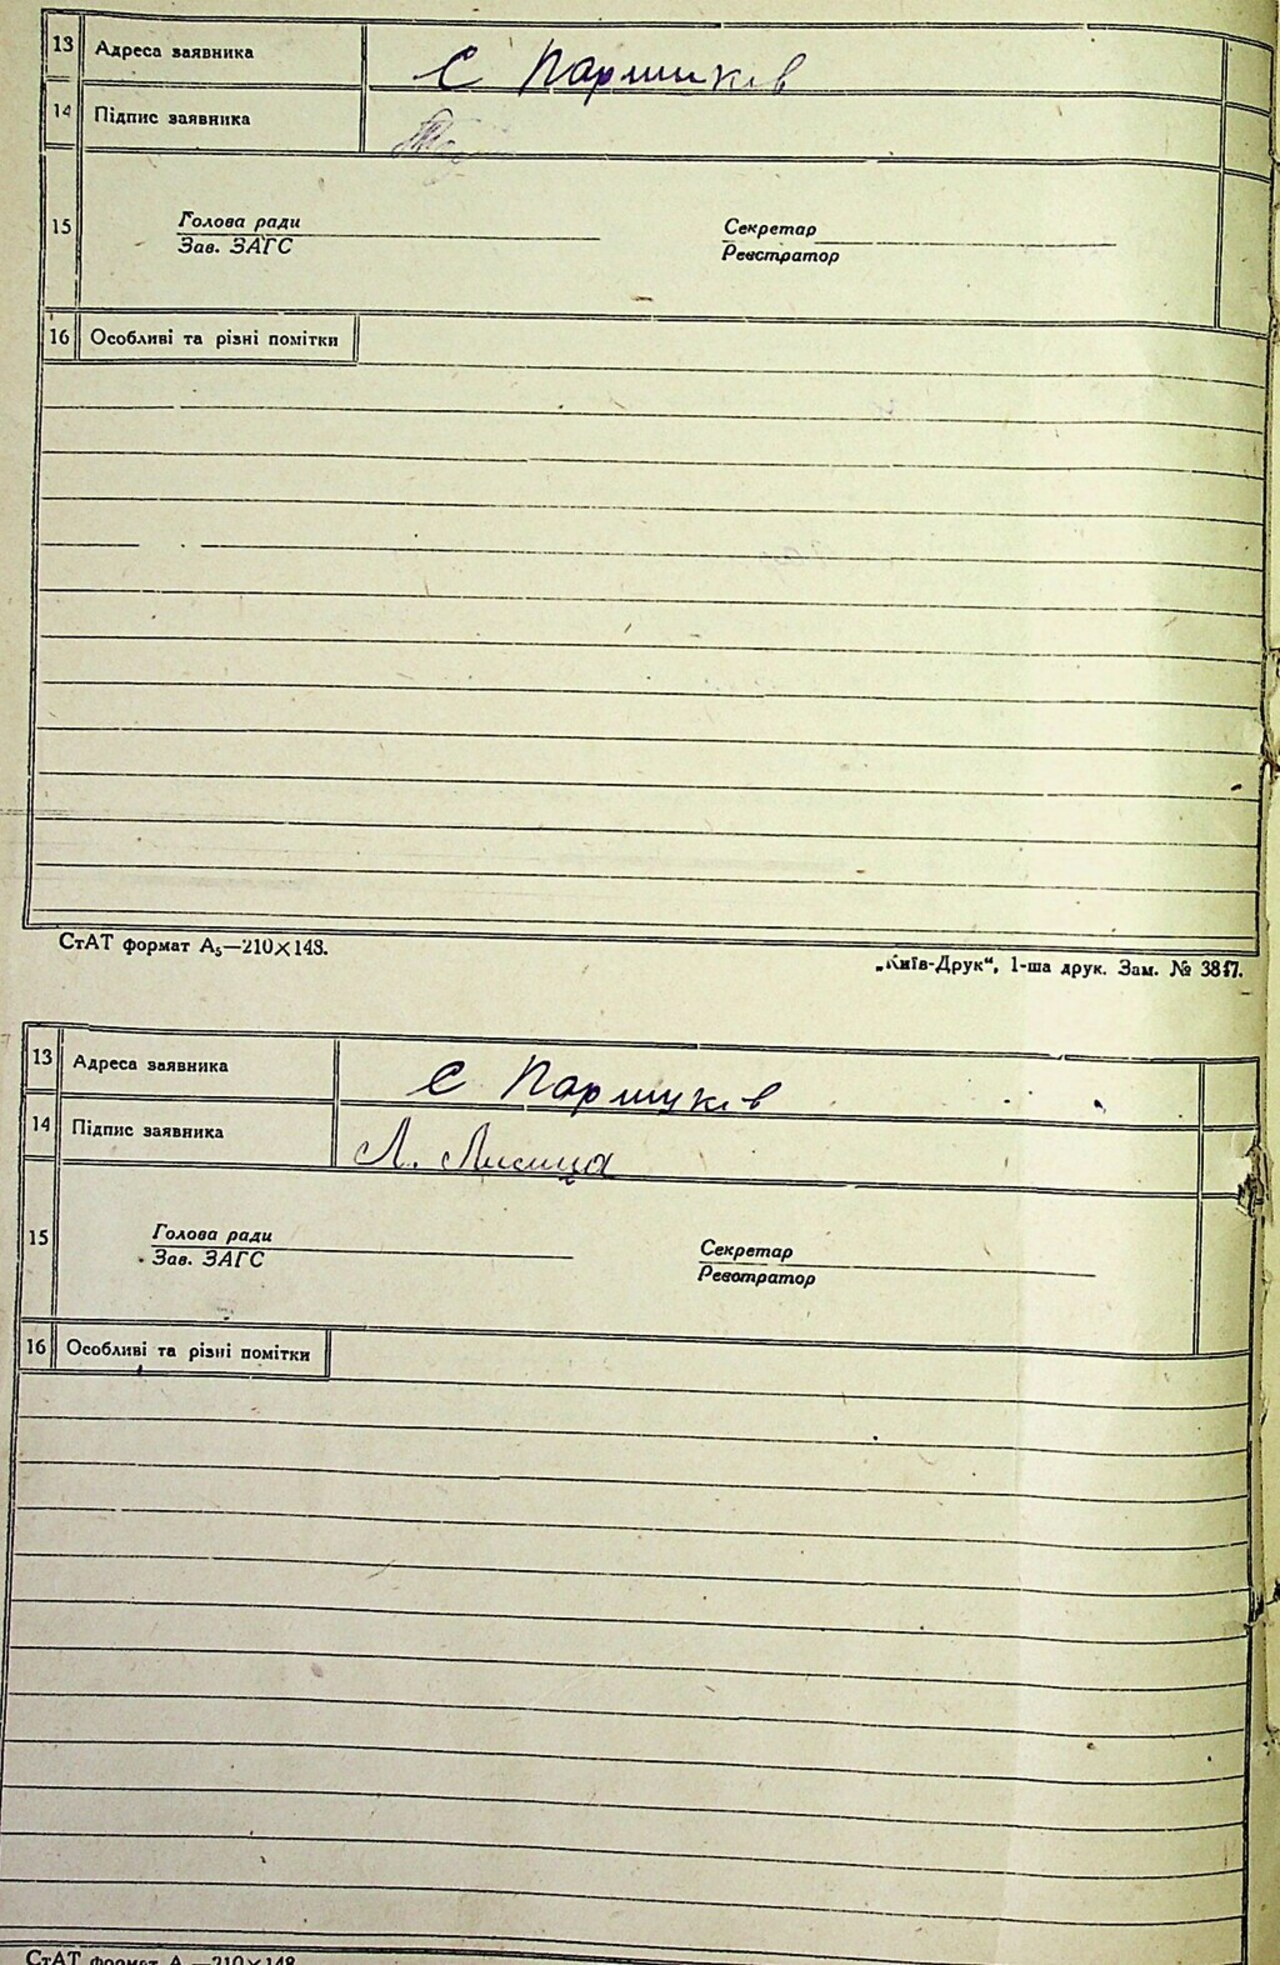 13 Адреса заявника С Паршиків
14 Підпис заявника
15 Голова ради Секретар
Зав. ЗАГС Реєстратор
16 Особливі та різні помітки
СтАТ формат А₅—210×148.
„Київ-Друк“, 1-ша друк. Зам. № 3817.
13 Адреса заявника С Паршуків
14 Підпис заявника Л. Лисиця
15 Голова ради Секретар
Зав. ЗАГС Реєстратор
16 Особливі та різні помітки
СтАТ формат А —210×148